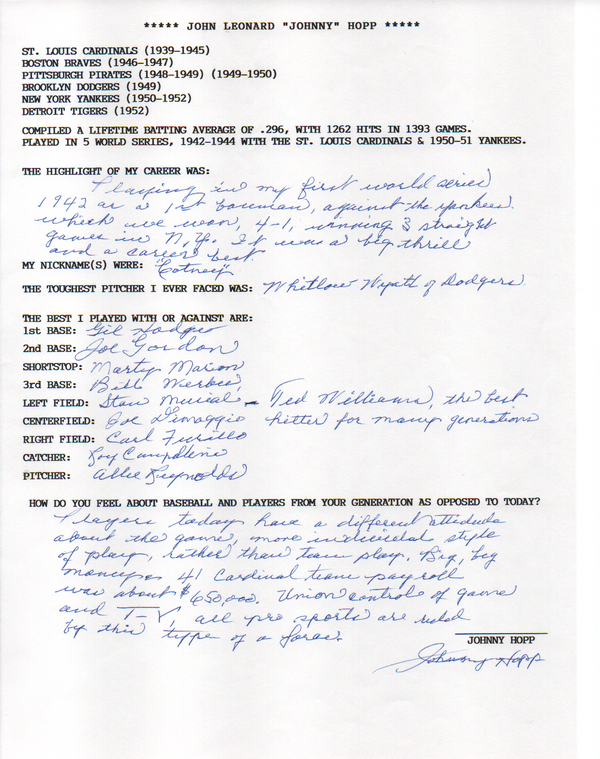 ***** JOHN LEONARD "JOHNNY" HOPP *****
ST. LOUIS CARDINALS (1939-1945)
BOSTON BRAVES (1946-1947)
PITTSBURGH PIRATES (1948-1949) (1949-1950)
BROOKLYN DODGERS (1949)
NEW YORK YANKEES (1950-1952)
DETROIT TIGERS (1952)
COMPILED A LIFETIME BATTING AVERAGE OF .296, WITH 1262 HITS IN 1393 GAMES.
PLAYED IN 5 WORLD SERIES, 1942-1944 WITH THE ST. LOUIS CARDINALS & 1950-51 YANKEES.
THE HIGHLIGHT OF MY CAREER WAS:
Playing in my first world series
1942 as a 1st baseman, against the yankees.
which we won, 4-1, winning 3 straight
games in N.Y. It was a big thrill
and a career best.
MY NICKNAME(S) WERE: "Cotney"
THE TOUGHEST PITCHER I EVER FACED WAS: Whitlow Wyatt of Dodgers
THE BEST I PLAYED WITH OR AGAINST ARE:
1st BASE: Gil Hodges
2nd BASE: Joe Gordon
SHORTSTOP: Marty Marion
3rd BASE: Bill Werber,
LEFT FIELD: Stan Musial - Ted Williams, the best
CENTERFIELD: Joe Dimaggio hitter for many generations
RIGHT FIELD: Carl Furillo
CATCHER: Roy
PITCHER: Allie Reynolds
HOW DO YOU FEEL ABOUT BASEBALL AND PLAYERS FROM YOUR GENERATION AS OPPOSED TO TODAY?
Players today have a different
about the game, more style
of play, rather than team play. Big, big
41 Cardinal team payroll
was about $650,000. Union controls of game
and T-V, all pro sports are ruled
by this type of a farce.
JOHNNY HOPP
Johnny Hopp